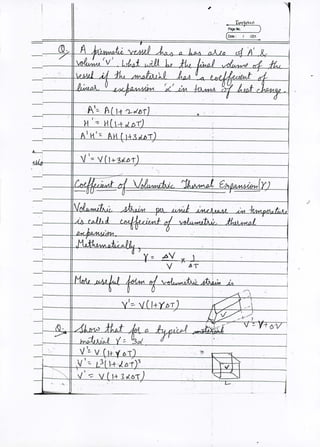 Page No.
Date
Q. A prismatic vessel has a bas area of A' &
volume 'V'. What will be the final volume of the
vessel if the material has a coefficient of
linear expansion 'α' in terms of heat change.
A' = A(1+2αΔT)
H' = H(1+αΔT)
A'H' = AH(1+3αΔT)
V' = V(1+3αΔT)
Coefficient of Volumetric Thermal Expansion(γ)
Volumetric strain per unit increase in temperature
is called coefficient of volumetric thermal
expansion.
Mathematically,
γ = ΔV/V × 1/ΔT
More useful form of volumetric strain is
V' = V(1+γΔT)
V
V' = V+ΔV
Q. Show that for a typical material
material γ = 3α
V' = V(1+γΔT)
V' = L³(1+αΔT)³
V' = V(1+3αΔT)
=
V
L